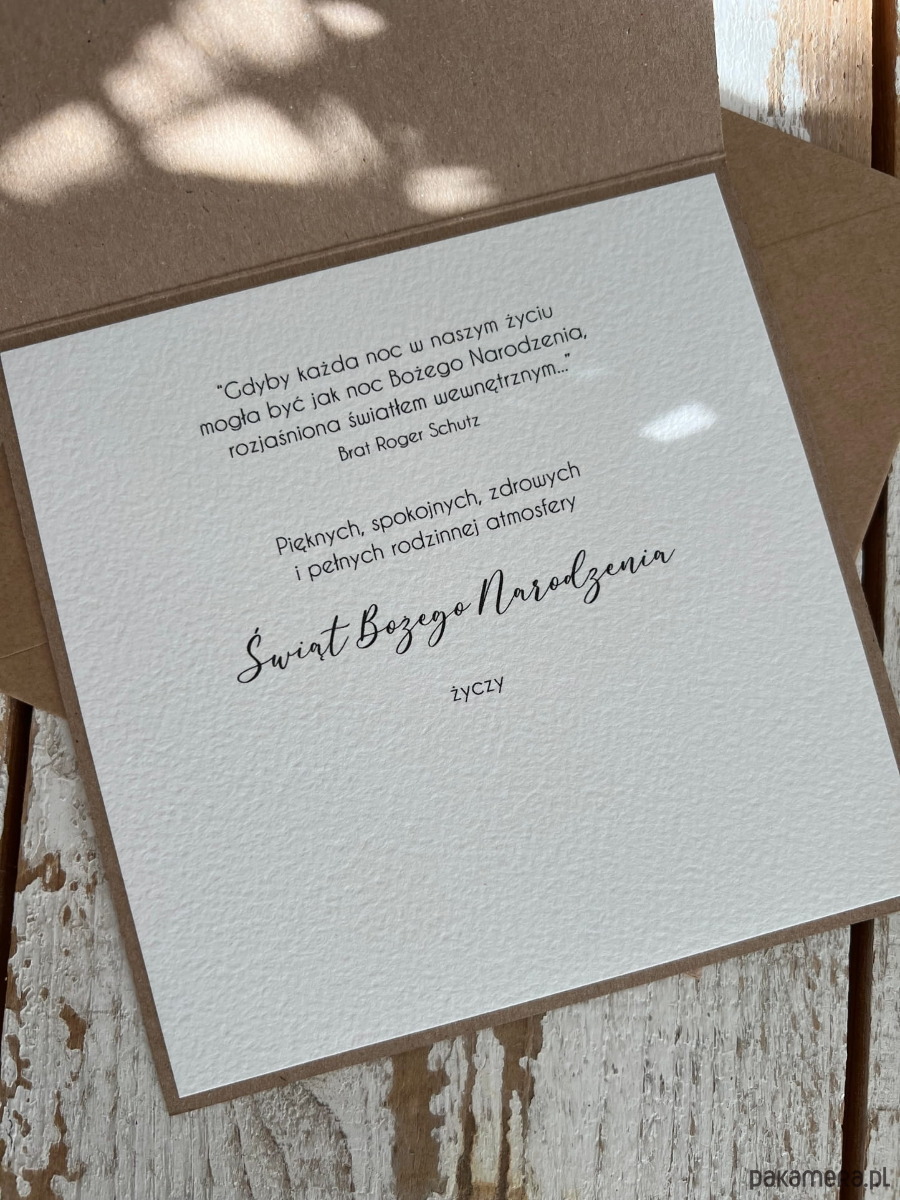 "Gdyby każda noc w naszym życiu
mogła być jak noc Bożego Narodzenia,
rozjaśniona światłem wewnętrznym..."
Brat Roger Schutz
Pięknych, spokojnych, zdrowych
i pełnych rodzinnej atmosfery
Świąt Bożego Narodzenia
życzy
pakamera.pl